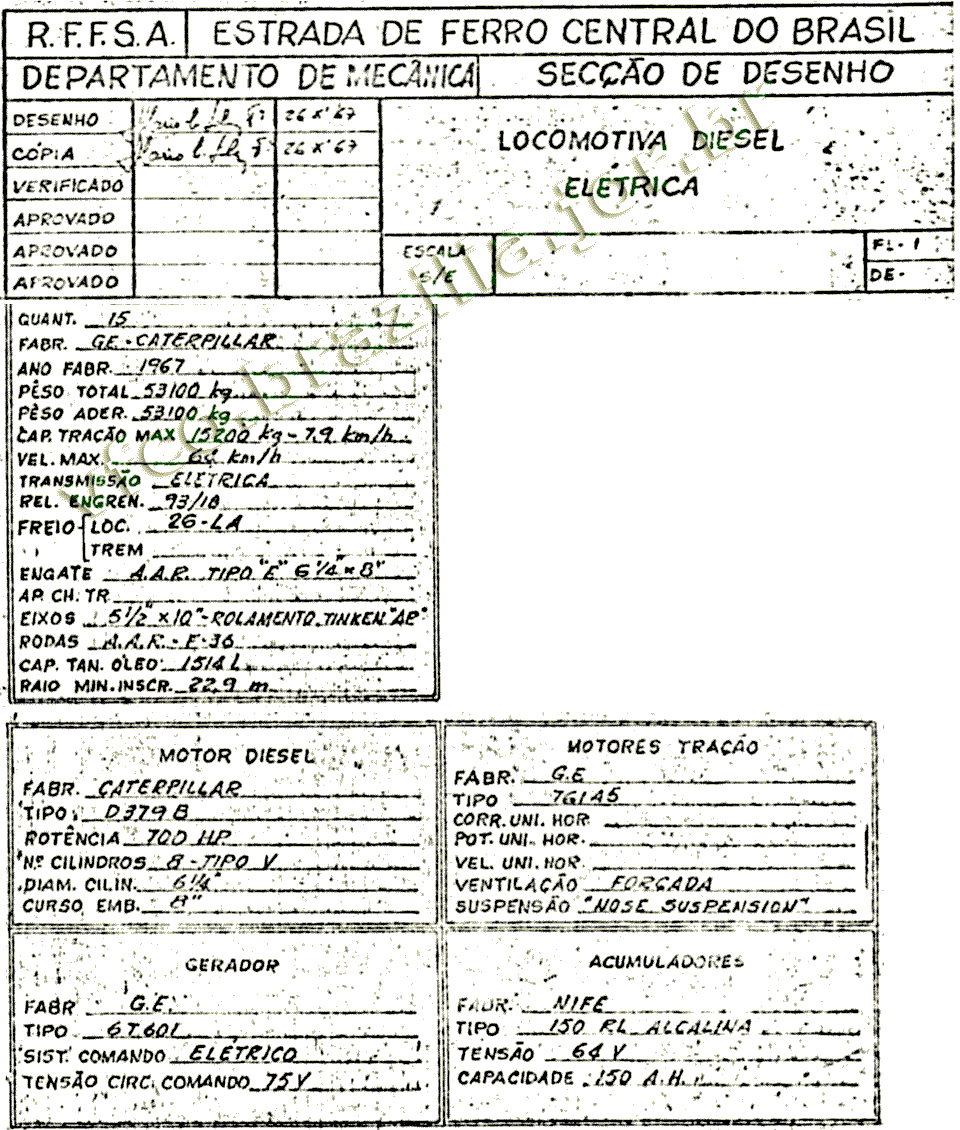 R.F.F.S.A. ESTRADA DE FERRO CENTRAL DO BRASIL
DEPARTAMENTO DE MECÂNICA SECÇÃO DE DESENHO
DESENHO 26 X' 67
CÓPIA 26 X' 67
VERIFICADO
APROVADO
APROVADO
APROVADO
LOCOMOTIVA DIESEL
ELÉTRICA
ESCALA
S/E
FL- 1
DE-
vfco.brazilia.jor.br
QUANT. 15
FABR. GE-CATERPILLAR
ANO FABR. 1967
PÊSO TOTAL 53100 kg
PÊSO ADER. 53100 kg
CAP. TRAÇÃO MAX 15200 kg - 7.9 km/h
VEL. MAX. 64 km/h
TRANSMISSÃO ELÉTRICA
REL. ENGREN. 93/18
FREIO LOC. 26-LA
TREM
ENGATE A.A.R. TIPO "E" 6 1/4" x 8"
AP. CH. TR.
EIXOS 5 1/2" x 10" - ROLAMENTO TINKEN "AP"
RODAS A.A.R. - E-36
CAP. TAN. ÓLEO 1514 L
RAIO MIN. INSCR. 22,9 m
MOTOR DIESEL
FABR. CATERPILLAR
TIPO: D379B
ROTÊNCIA 700 HP
Nº CILINDROS 8 - TIPO V
DIAM. CILIN. 6 1/4"
CURSO EMB. 8"
MOTORES TRAÇÃO
FABR. G.E
TIPO 761A5
CORR. UNI. HOR.
POT. UNI. HOR.
VEL. UNI. HOR.
VENTILAÇÃO FORÇADA
SUSPENSÃO "NOSE SUSPENSION"
GERADOR
FABR G.E.
TIPO 6T601
SIST. COMANDO ELÉTRICO
TENSÃO CIRC. COMANDO 75V
ACUMULADORES
FABR. NIFE
TIPO 150 RL ALCALINA
TENSÃO 64 V
CAPACIDADE 150 A.H.